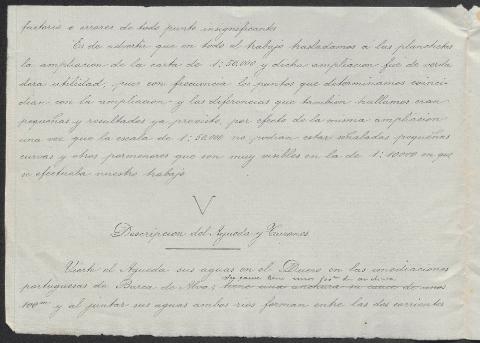 factorio o errores de todo punto insignificantes
Es de advertir que en todo el trabajo trasladamos a las planchetas
la ampliacion de la carta de 1:50.000 y dicha ampliacion fué de verda
dera utilidad, pues con frecuencia los puntos que determinamos coinci
dian con la ampliacion y las diferencias que tambien hallamos eran
pequeñas y resultados ya previsto, por efecto de la misma ampliacion
una vez que la escala de 1:50.000 no podian estar señaladas pequeñas
curvas y otros pormenores que son muy visibles en la de 1:10.000 en que
se efectuaba nuestro trabajo
V
Descripcion del Agueda y Turones
Vierte el Agueda sus aguas en el Duero en las inmediaciones
portuguesas de Barca de Alva; tiene una anchura su cauce de unos
100 m y al juntar sus aguas ambos rios forman entre las dos corrientes